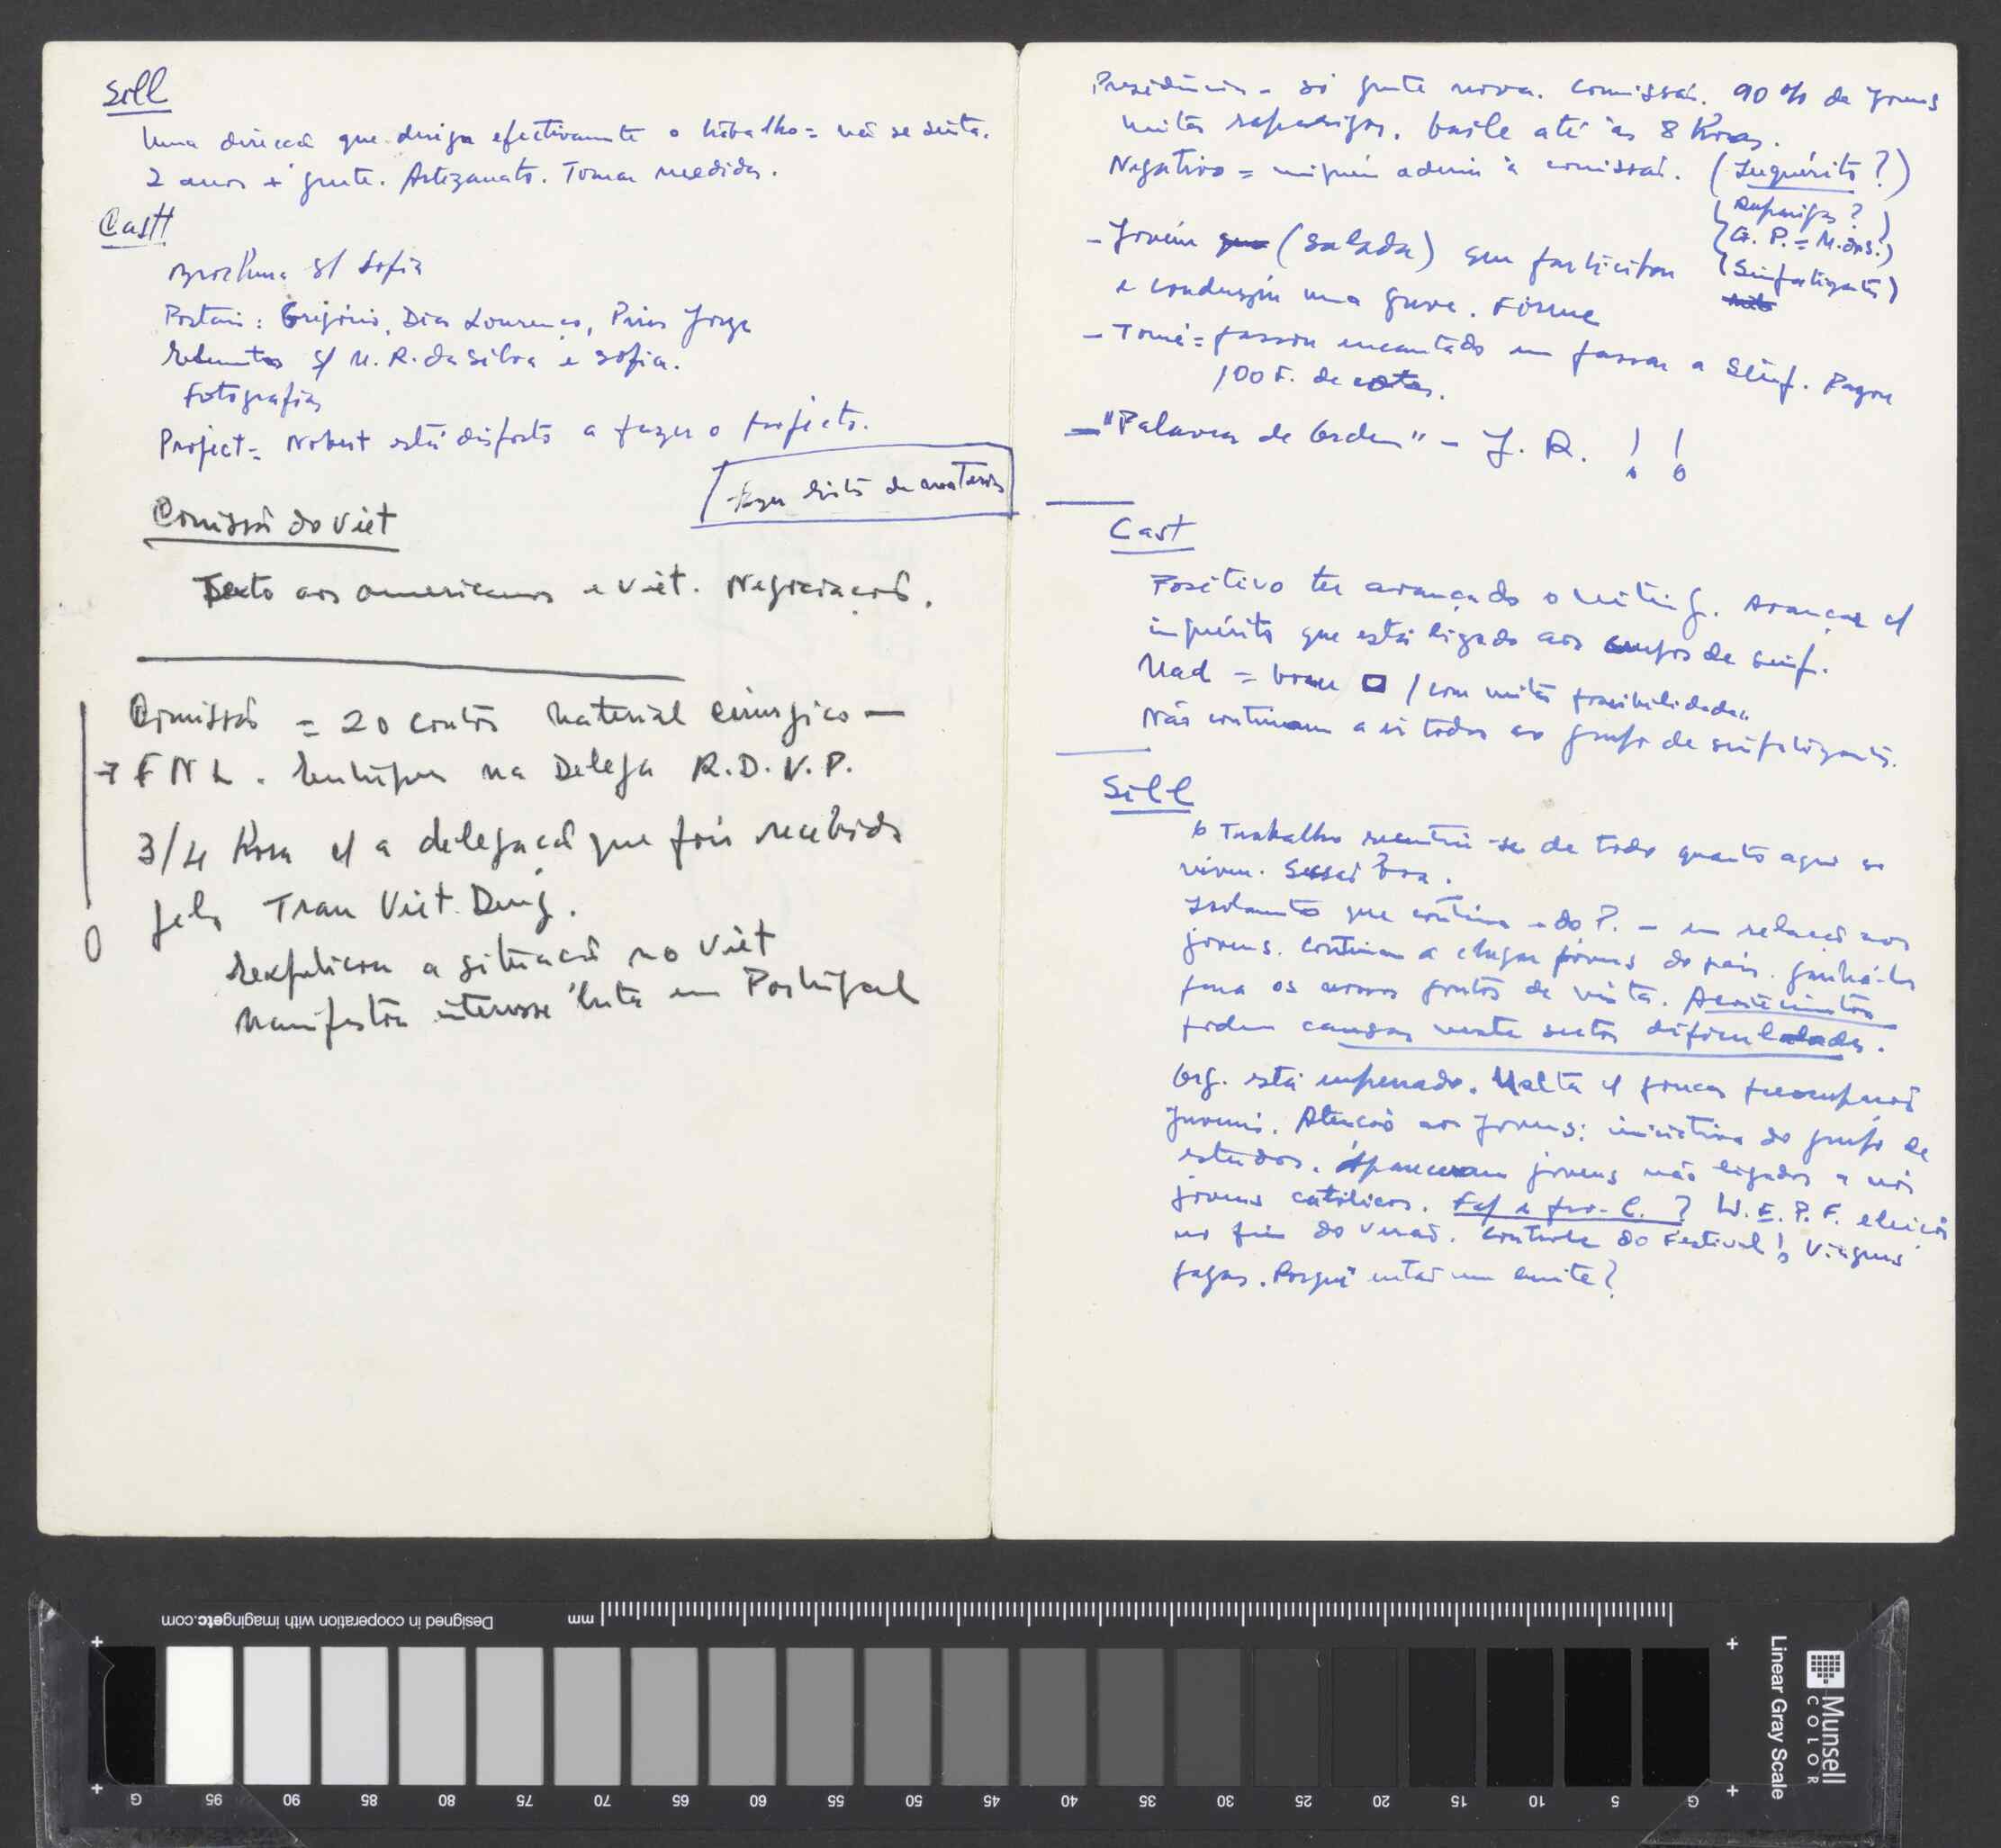 Sill
Uma direcção que dirija efectivamente o trabalho = não se sente.
2 anos + gente. Artezanato. Tomar medidas.
Cast
Brochura s/ Sofia
Postais: Grigório, Dias Lourenço, Pires Jorge
s/ M. R. da Silva e Sofia.
Fotografias
Project = Nobert está disposto a fazer o projecto.
Fazer lista de materiais
Comissão do Viet
Texto aos americanos e Viet. Negociação.
Comissão = 20 contos material cirurgico —
→ F N L. na Delega R.D.V.P.
3/4 hora c/ a delegação que foi recebida
pelo Tran Viet Dung.
a situação no Viet
Manifestou interesse luta em Portugal
Presidência - só gente nova. Comissão. 90% de Jovens
muitas raparigas. baile até às 8 horas.
Negativo = ninguém aderiu à comissão. (Inquérito?)
(Raparigas?)
(G. P. = M.
(Simpatizantes)
- Jovem (Salada) que participou
e conduziu uma greve. Firme
- Tomé = passou encantado em passar a Simp. Pagou
100 F. de cotas.
- "Palavra de Ordem" - J. R. ! !
Cast
Positivo ter avançado o miting. Avançar c/
inquérito que está ligado aos grupos de simp.
Mad = / com muitas possibilidades.
Não continuam a ir todos ao grupo de simpatizantes.
Sill
O Trabalho ressentiu-se de todo quanto aqui se
viveu. Sessão boa.
Isolamento que continua - do P. - em relação aos
jovens. Continuam a chegar jovens do país. ganhá-los
para os nossos pontos de vista. Acontecimentos
podem causar neste sector dificuldades.
Org. está emperrado. Malta c/ poucas preocupações
Juvenis. Atenção aos Jovens: iniciativa do grupo de
estudos. Apareceram jovens não ligados a nós
jovens católicos. ? W. E. P. F. eleição
no fim do verão. Controle do Festival! Viagens
pagas. Porquê então um limite?
Designed in cooperation with imagingetc.com
mm
Munsell
COLOR
Linear Gray Scale
G 95 90 85 80 75 70 65 60 55 50 45 40 35 30 25 20 15 10 5 G